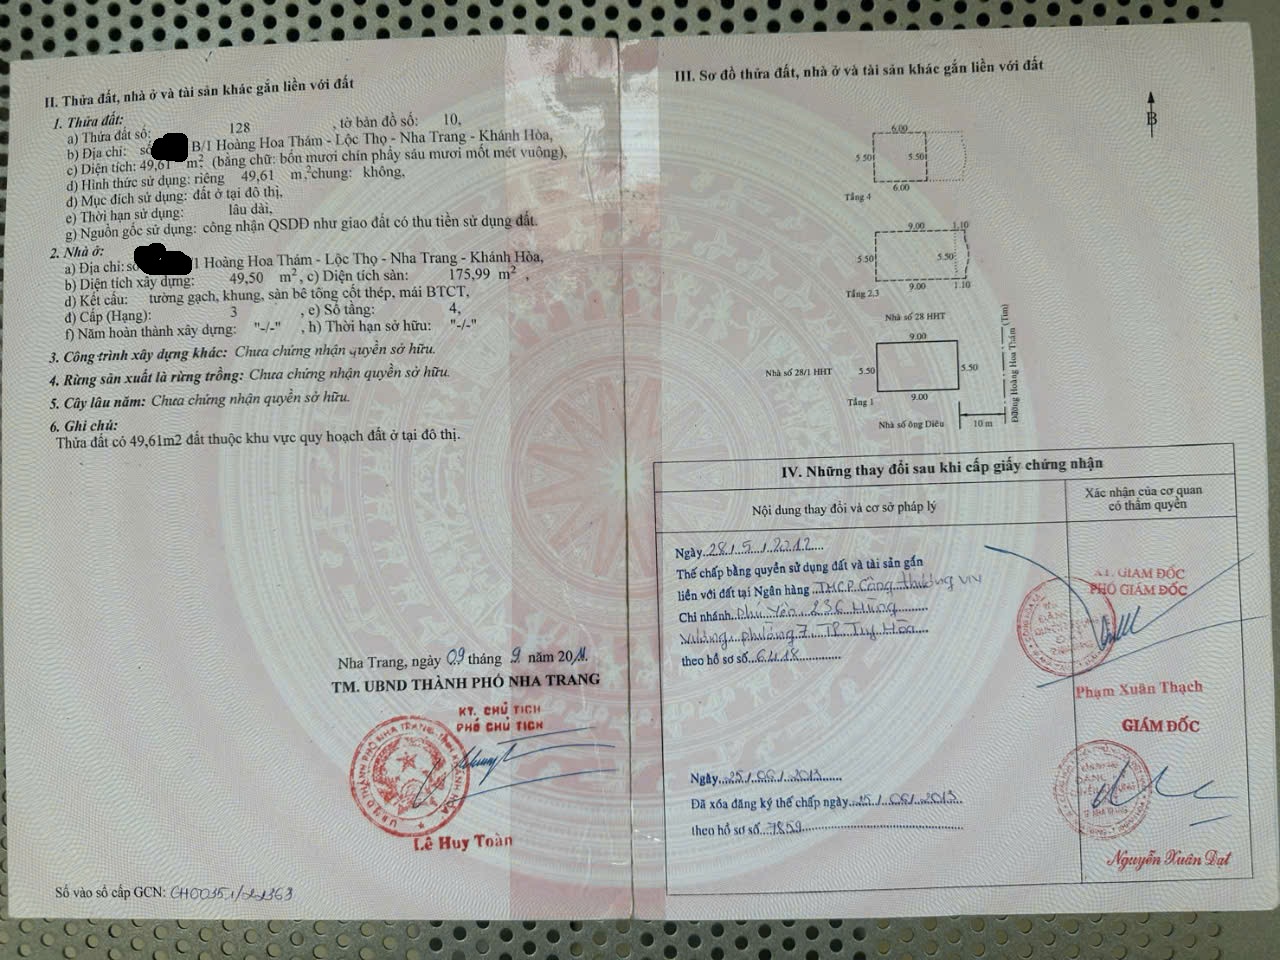 II. Thửa đất, nhà ở và tài sản khác gắn liền với đất
1. Thửa đất:
a) Thửa đất số: 128 , tờ bản đồ số: 10,
b) Địa chỉ: số B/1 Hoàng Hoa Thám - Lộc Thọ - Nha Trang - Khánh Hòa,
c) Diện tích: 49,61 m², (bằng chữ: bốn mươi chín phẩy sáu mươi mốt mét vuông),
d) Hình thức sử dụng: riêng 49,61 m², chung: không,
đ) Mục đích sử dụng: đất ở tại đô thị,
e) Thời hạn sử dụng: lâu dài,
g) Nguồn gốc sử dụng: công nhận QSDĐ như giao đất có thu tiền sử dụng đất.
2. Nhà ở:
a) Địa chỉ: số 1 Hoàng Hoa Thám - Lộc Thọ - Nha Trang - Khánh Hòa,
b) Diện tích xây dựng: 49,50 m² , c) Diện tích sàn: 175,99 m² ,
d) Kết cấu: tường gạch, khung, sàn bê tông cốt thép, mái BTCT,
đ) Cấp (Hạng): 3 , e) Số tầng: 4,
f) Năm hoàn thành xây dựng: "-/-" , h) Thời hạn sở hữu: "-/-"
3. Công trình xây dựng khác: Chưa chứng nhận quyền sở hữu.
4. Rừng sản xuất là rừng trồng: Chưa chứng nhận quyền sở hữu.
5. Cây lâu năm: Chưa chứng nhận quyền sở hữu.
6. Ghi chú:
Thửa đất có 49,61m2 đất thuộc khu vực quy hoạch đất ở tại đô thị.
Nha Trang, ngày 09 tháng 9 năm 2011.
TM. UBND THÀNH PHỐ NHA TRANG
KT. CHỦ TỊCH
PHÓ CHỦ TỊCH
Lê Huy Toàn
Số vào sổ cấp GCN:
III. Sơ đồ thửa đất, nhà ở và tài sản khác gắn liền với đất
B
6.00
5.50 5.50
6.00
Tầng 4
9.00 1.10
5.50 5.50
9.00 1.10
Tầng 2,3
Nhà số 28 HHT
9.00
Nhà số 28/1 HHT 5.50 5.50
9.00
Tầng 1
Nhà số ông Diêu
10 m
Đường Hoàng Hoa Thám (Tim)
IV. Những thay đổi sau khi cấp giấy chứng nhận
Nội dung thay đổi và cơ sở pháp lý
Xác nhận của cơ quan
có thẩm quyền
Ngày 28/5/2012
Thế chấp bằng quyền sử dụng đất và tài sản gắn
liền với đất tại Ngân hàng TMCP Công thương VN
Chi nhánh Phú Yên 236 Hùng
Vương, phường 7, TP Tuy Hòa
theo hồ sơ số 6418
KT. GIÁM ĐỐC
PHÓ GIÁM ĐỐC
Phạm Xuân Thạch
GIÁM ĐỐC
Ngày 25/06/2013
Đã xóa đăng ký thế chấp ngày 25/06/2013
theo hồ sơ số 7859
Nguyễn Xuân Đạt